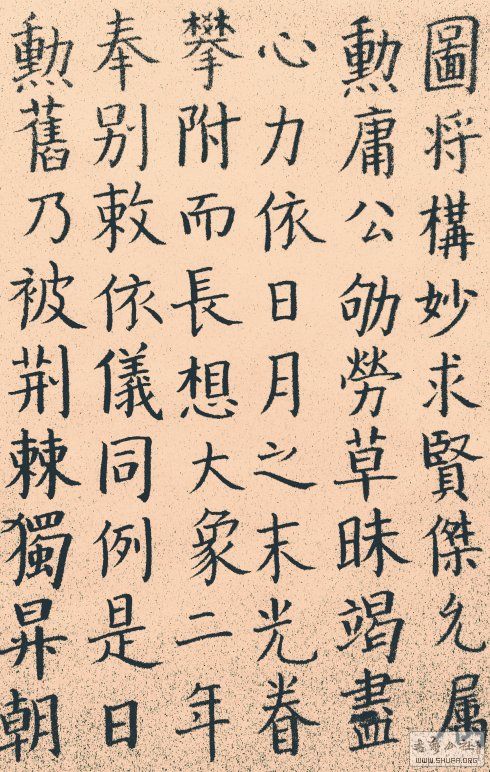 圖將構妙求賢傑允属
勲庸公劬勞草昧竭盡
心力依日月之末光眷
攀附而長想大象二年
奉別敕依儀同例是日
勲舊乃被荆棘獨昇朝
WWW.SHUFA.ORG